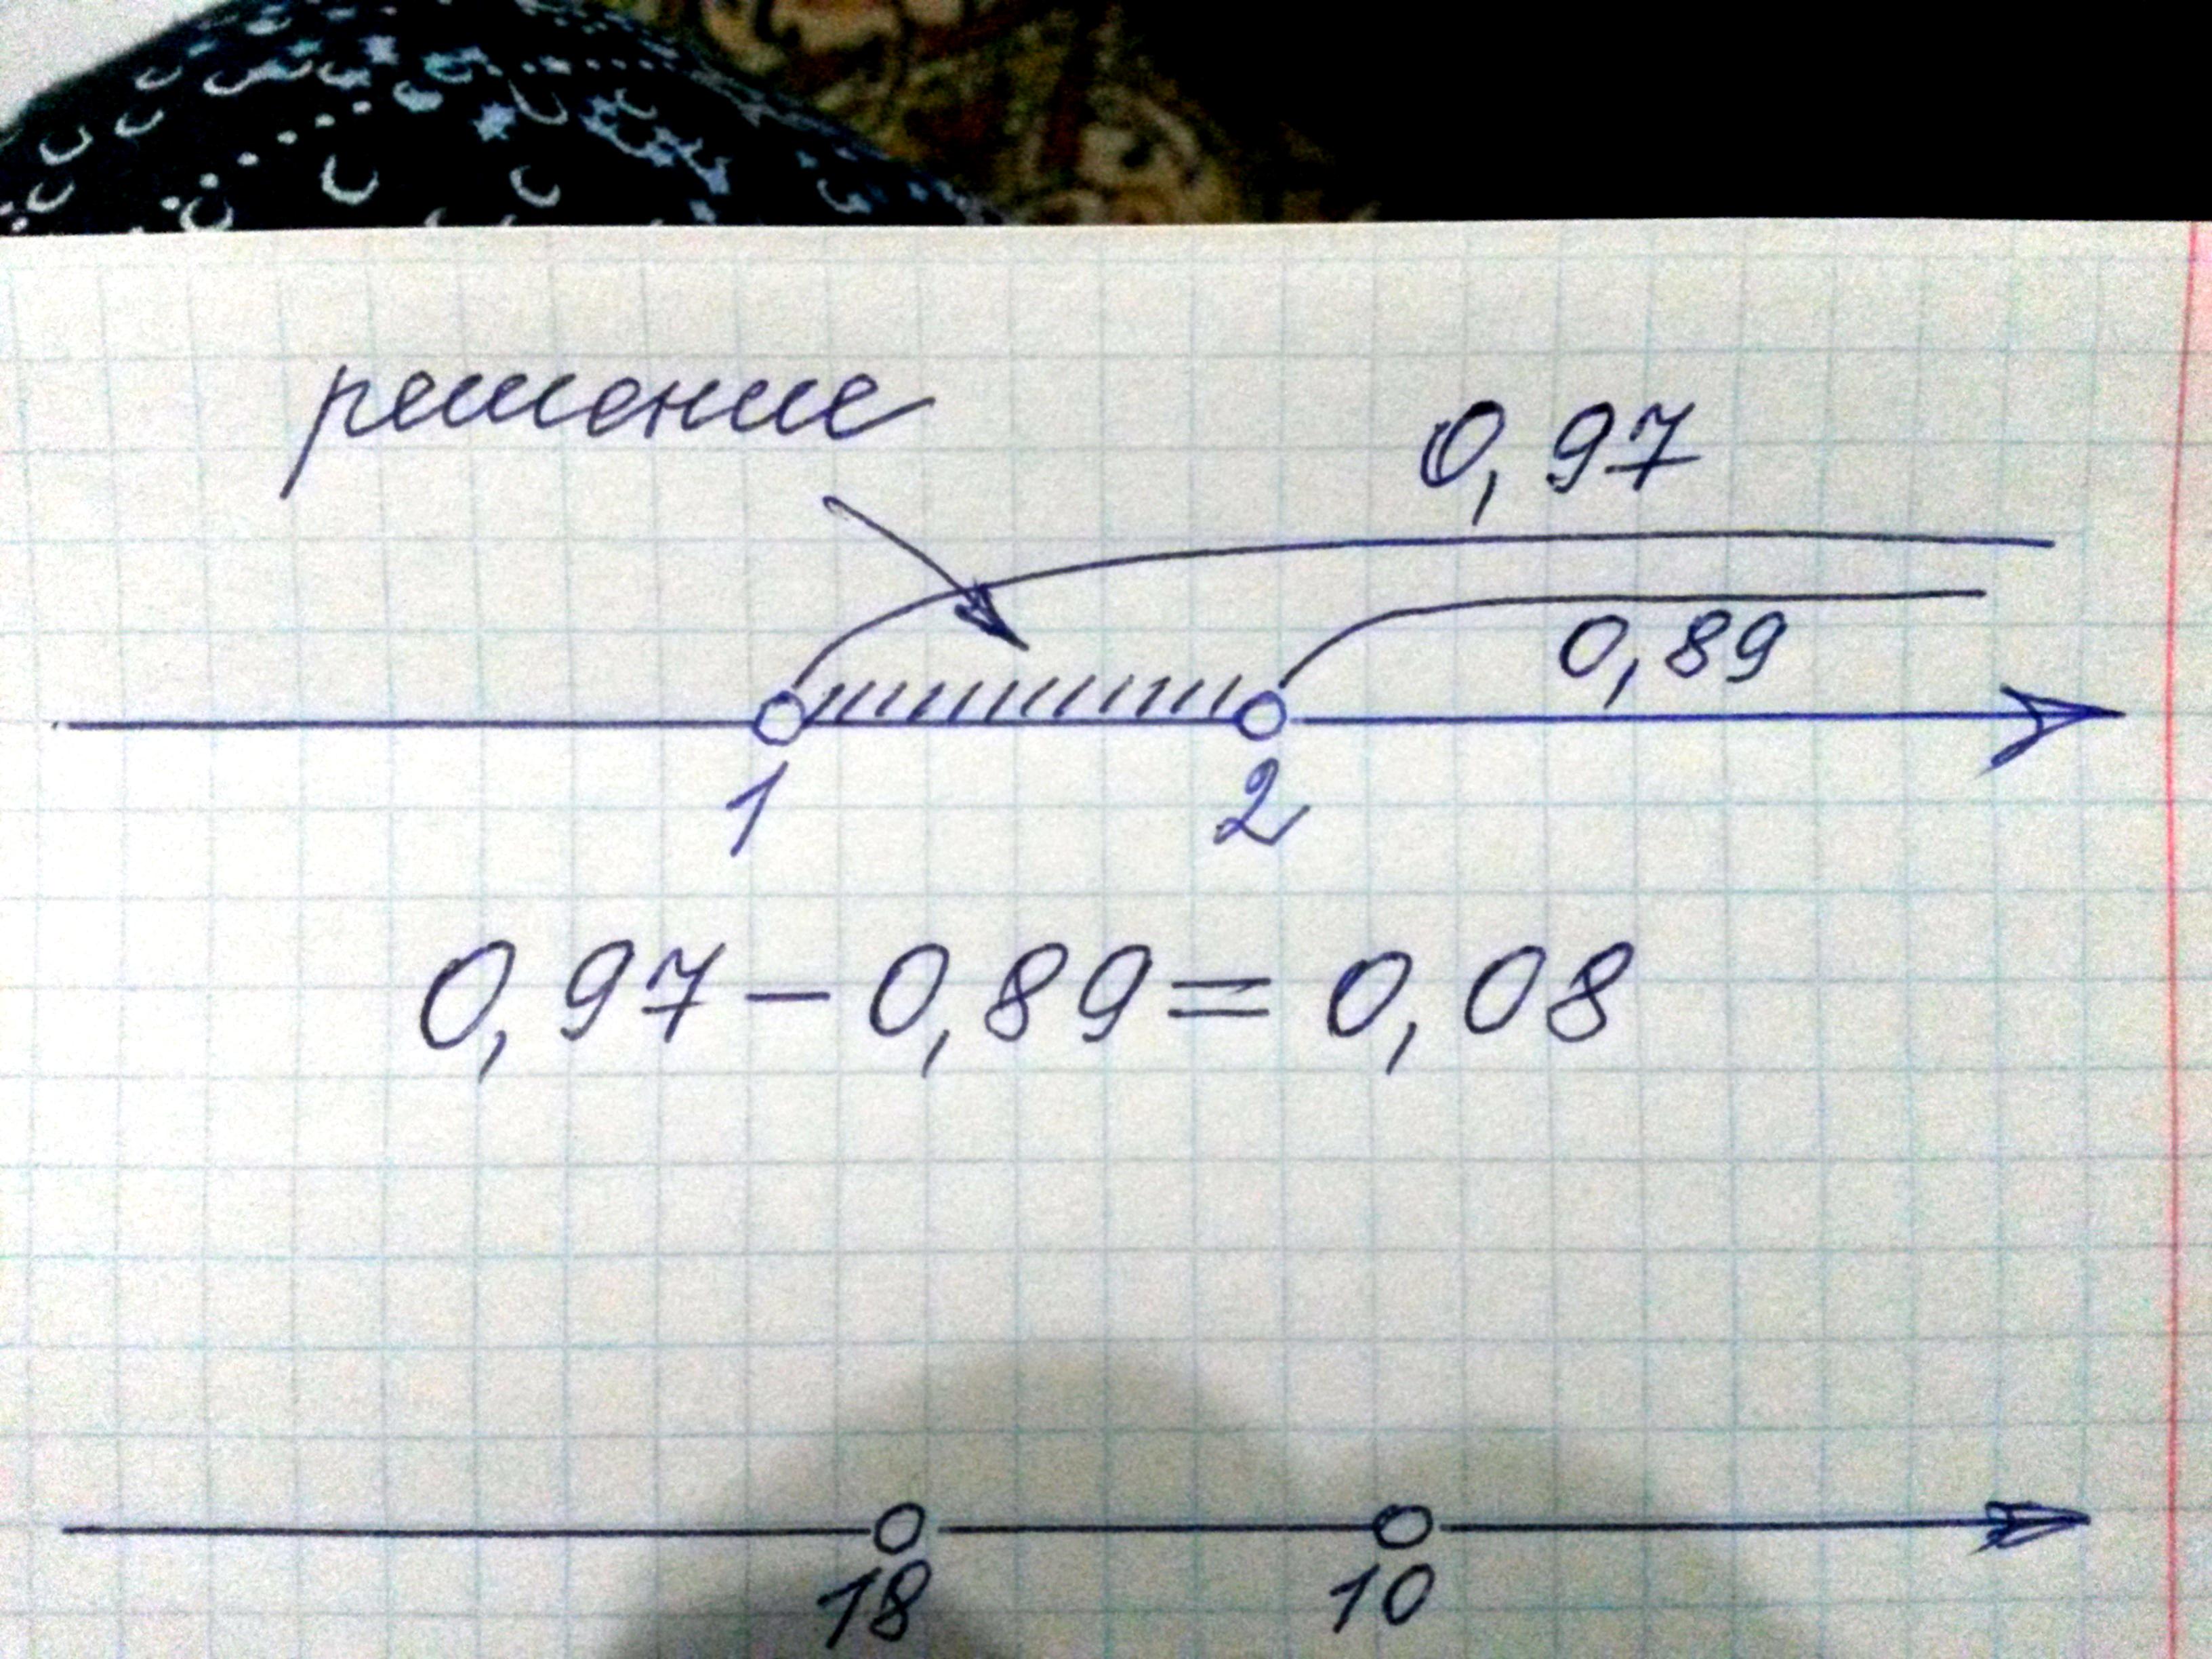 решение
0,97
0,89
1 2
0,97 - 0,89 = 0,08
18 10